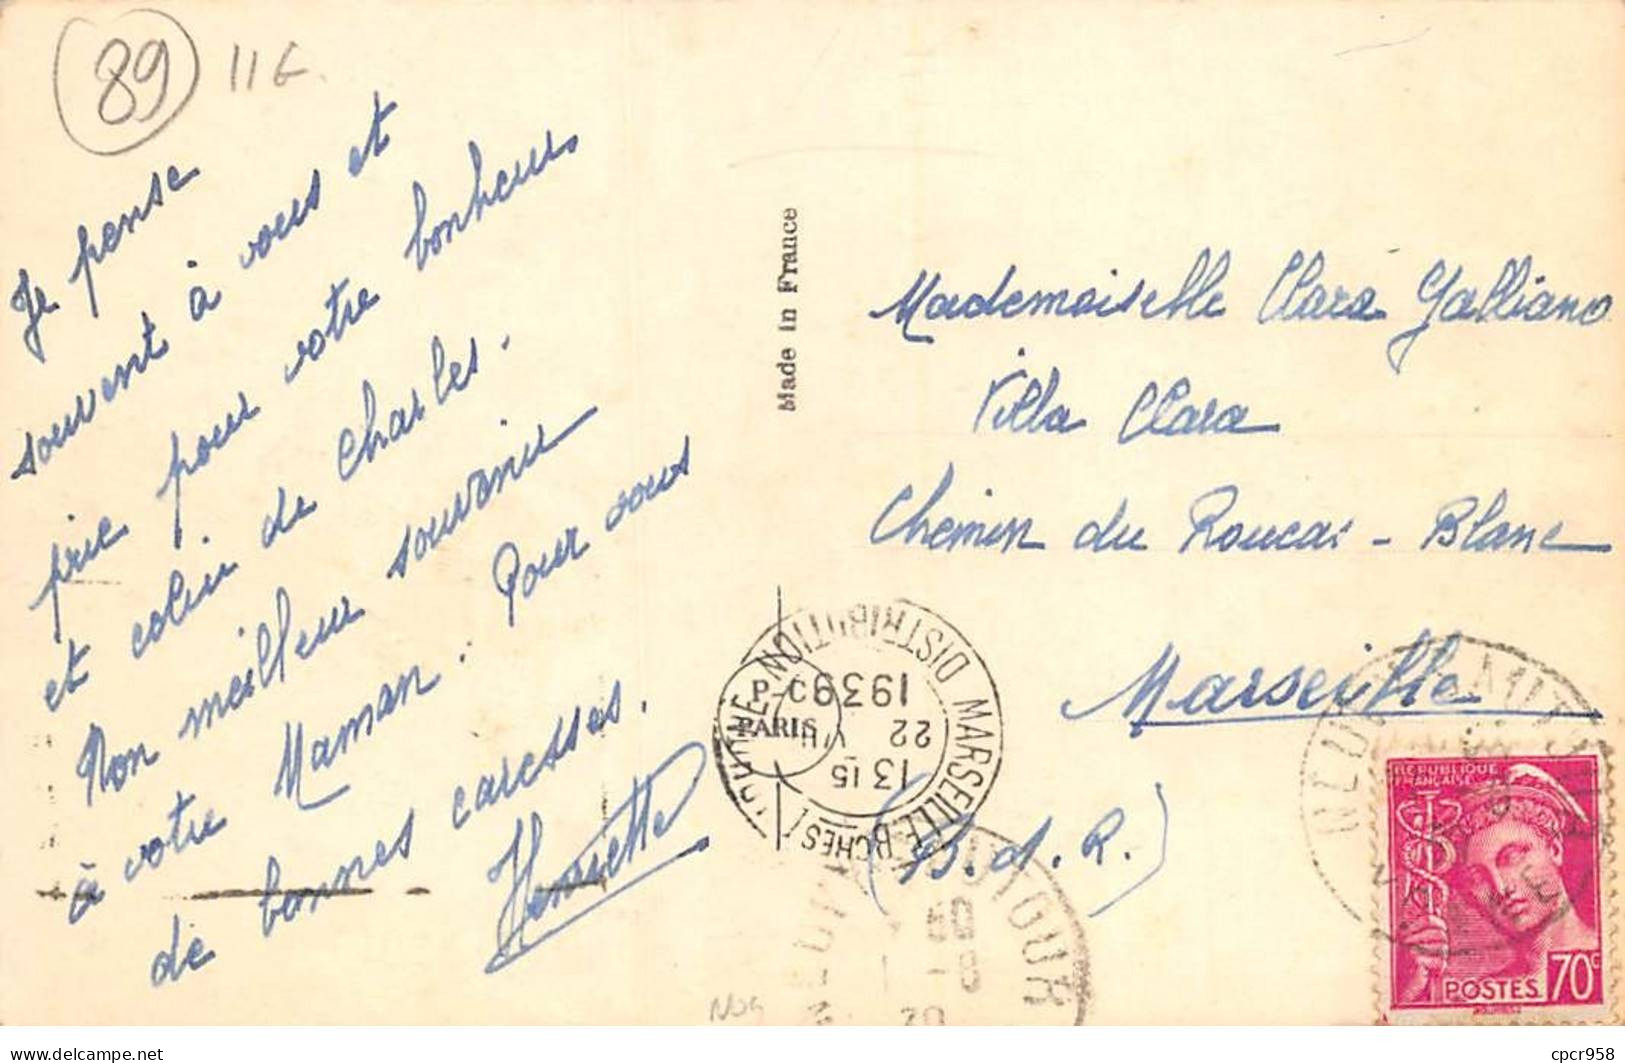 89 11 G
Je pense
souvent à vous et
prie pour votre bonheur
et celui de Charles.
Mon meilleur souvenir
à votre Maman. Pour vous
de bonnes caresses.
Henriette
Made in France
Mademoiselle Clara Galliano
Villa Clara
Chemin du Roucas-Blanc
Marseille
(B.d.R.)
MARSEILLE DISTRIBUTION
BCHES
13 15
22 VII
1939
P-C
PARIS
RÉPUBLIQUE
FRANÇAISE
POSTES 70c
delcampe.net
cpcr958